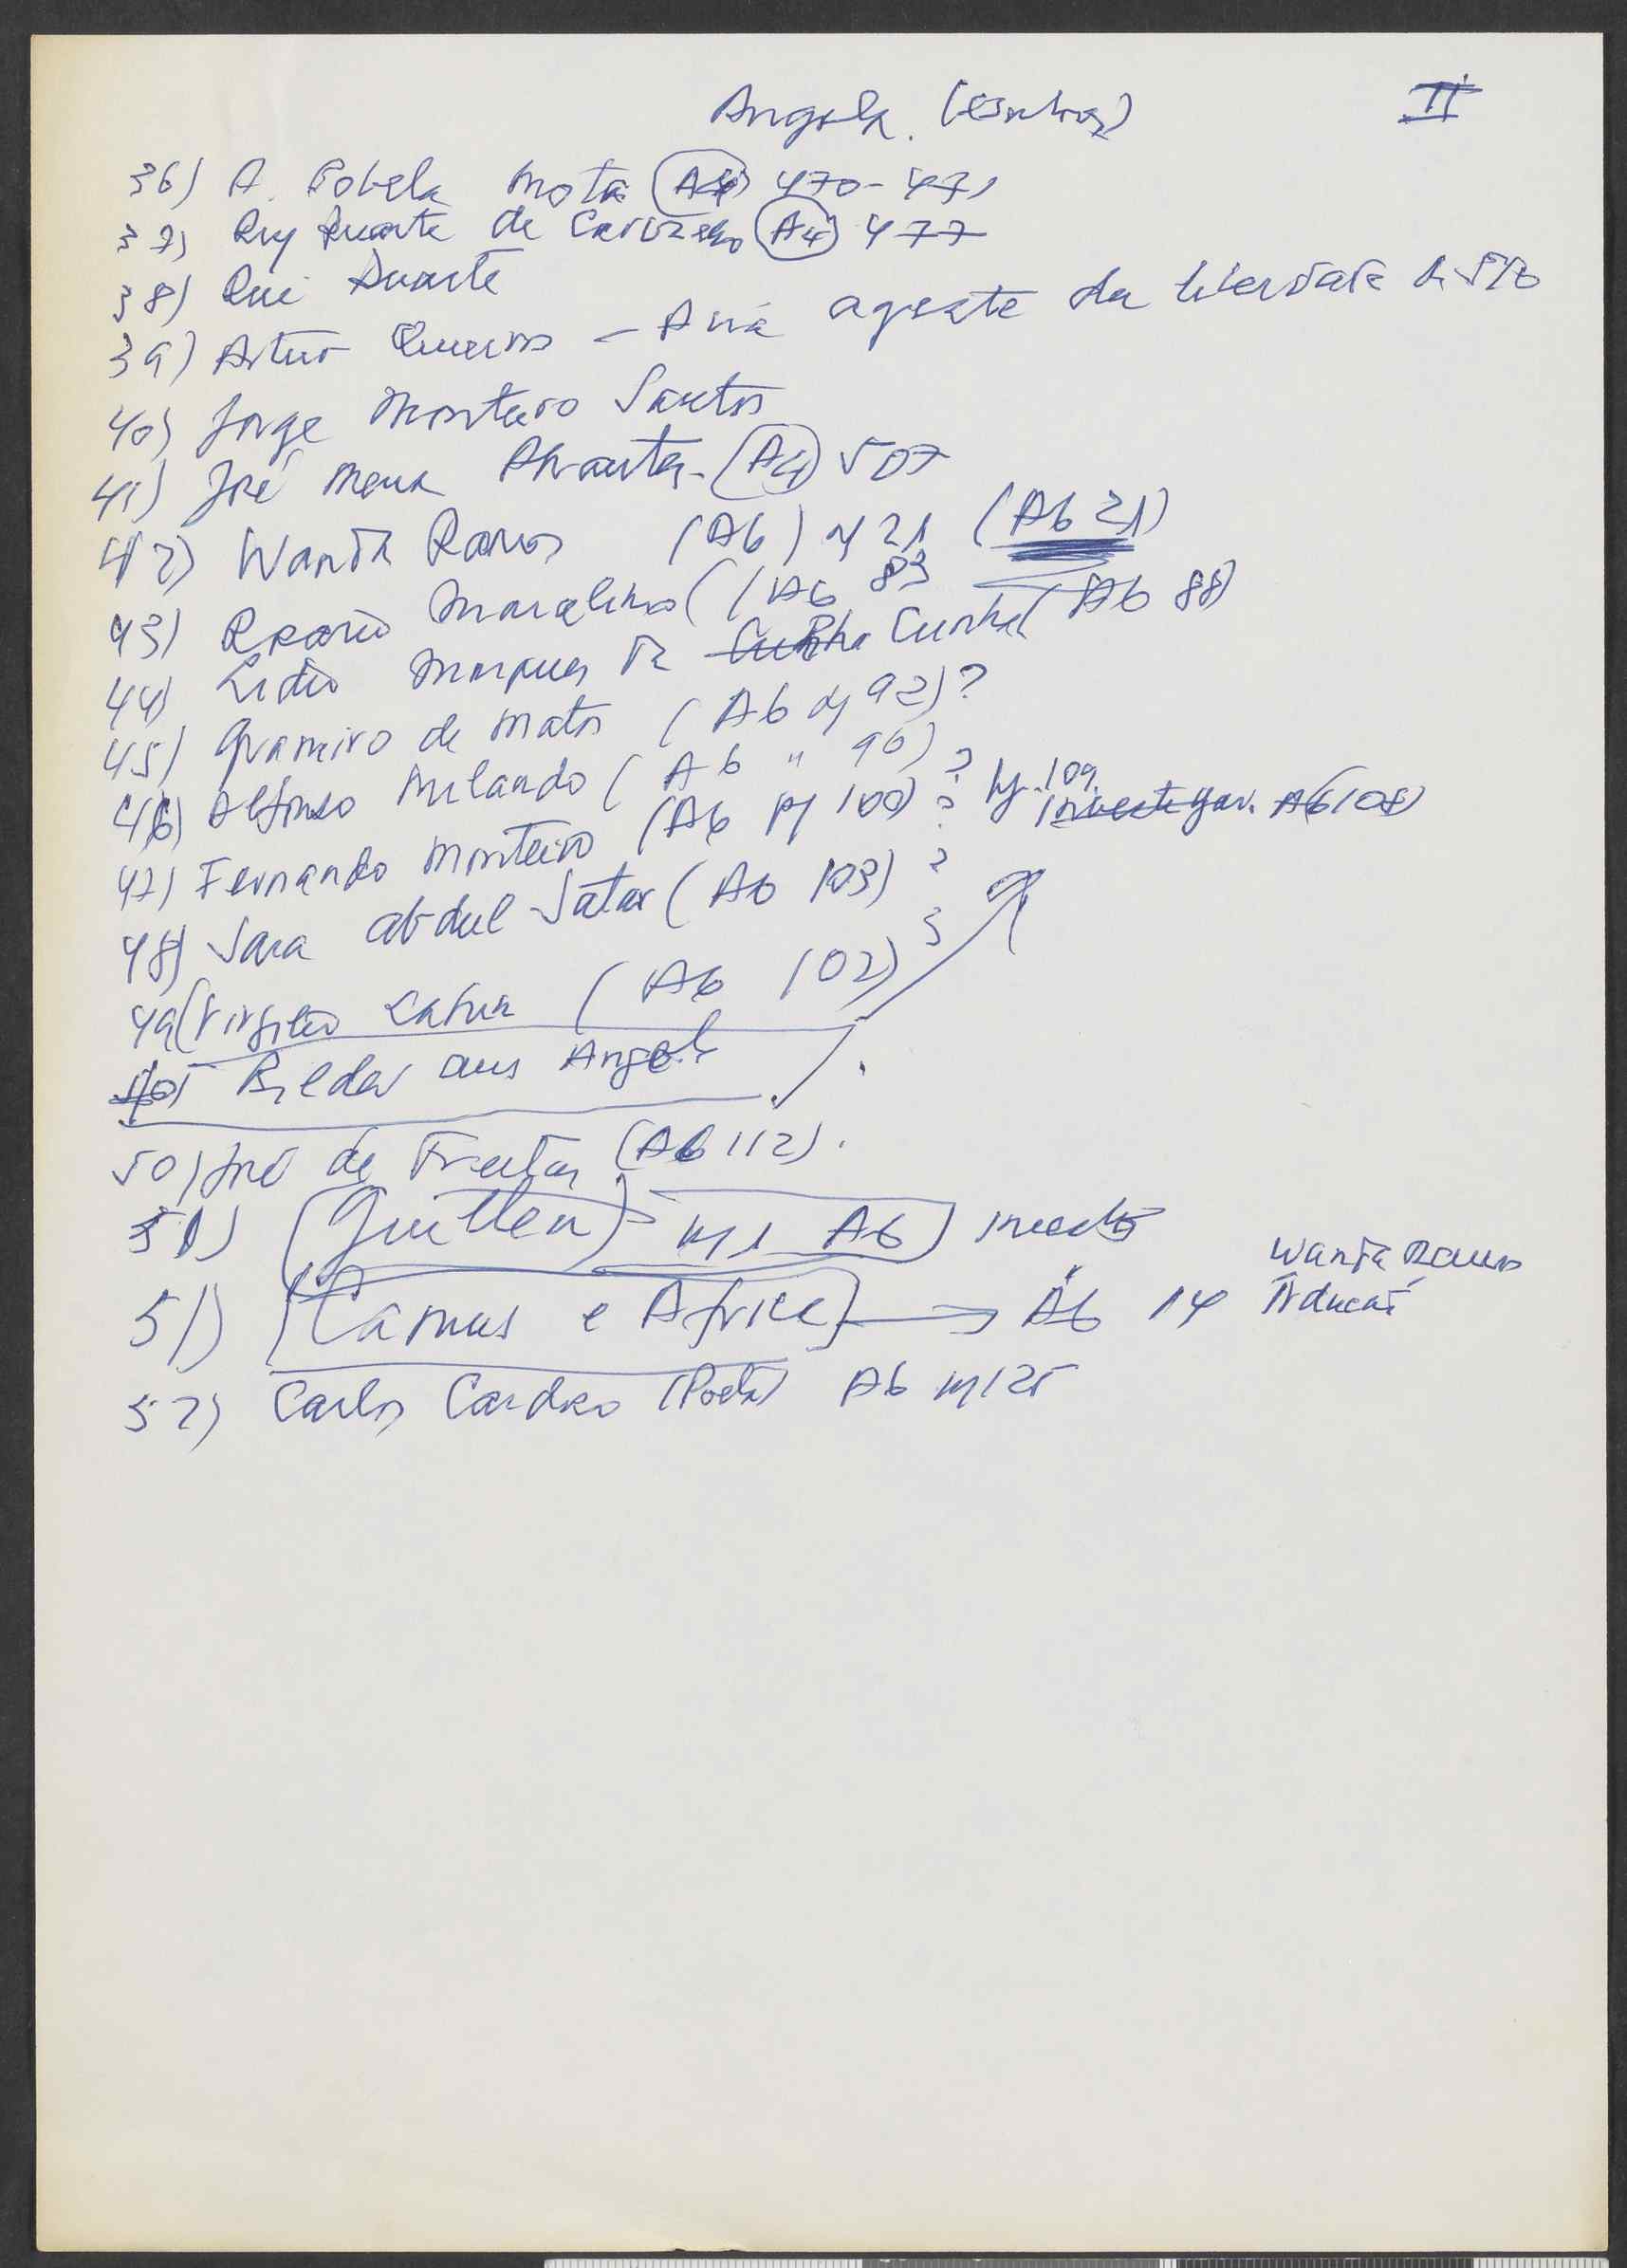 Angola. II
36) A. Pobela Mota (A4) 470-471
37) Ruy Duarte de Carvalho (A4) 477
38) Rui Duarte
39) Artur Queiros - agente da liberdade
40) Jorge Monteiro Santos
41) José Mena Abrantes (A4) 507
42) Wanda Ramos (A6) 21 (A6 21)
43) Rosário Marcelino (A6 83
44) Lidio Marques da Cunha Cunha (A6 88)
45) Gramiro de Matos (A6 92)?
46) Alfonso Milando (A6 " 96)?
47) Fernando Monteiro (A6 pg 100)? 109
Investigar. A6 108)
48) Sara abdul Satar (A6 103)?
49) Virgilio (A6 102)?
50) Bilder aus Angola
50) José de Freitas (A6 112).
51) (Guillen) A6)
51) (Camus e Africa) → A6 14 Wanda Ramos
52) Carlos Cardoso (Poeta) A6 125